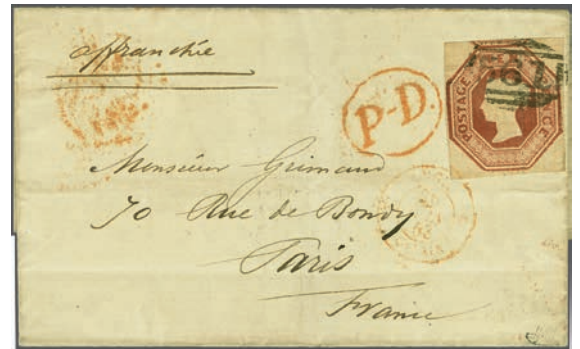 affranchie
P-D.
POSTAGE
CE
Monsieur Grimaud
70 Rue de Bondy
Paris
France